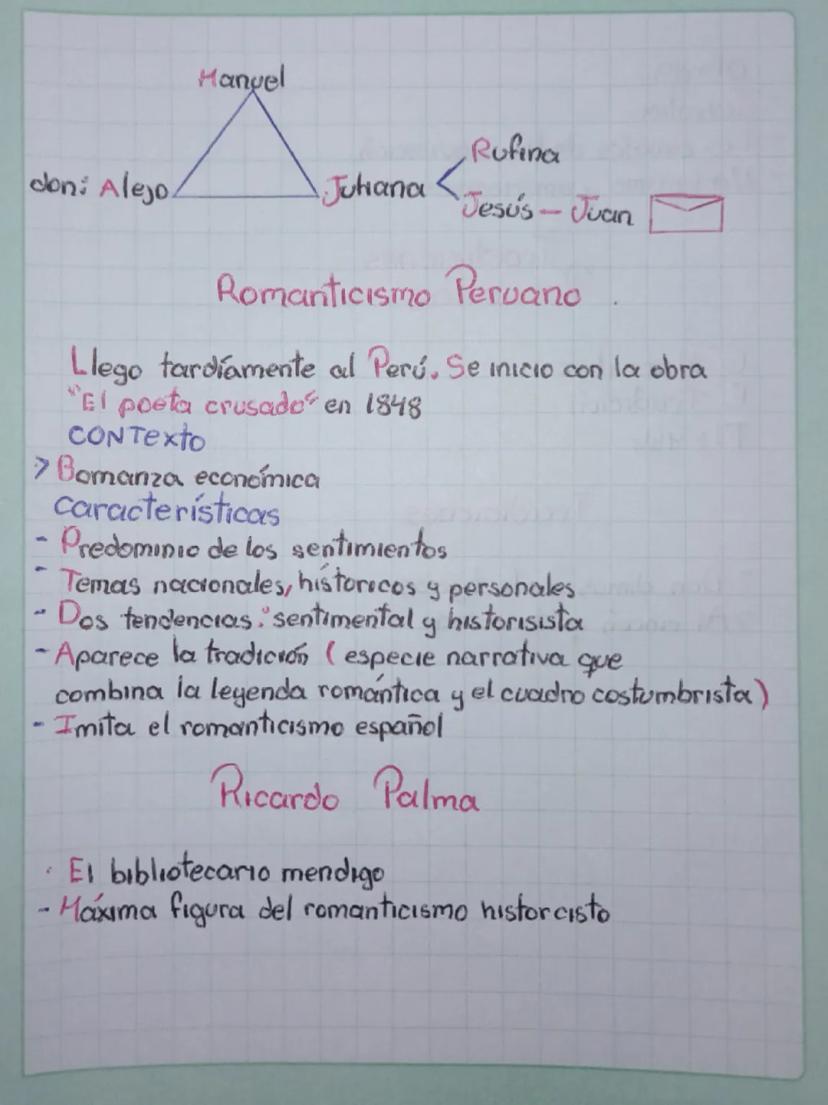 Manuel
don: Alejo
Juhana
Rufina
Jesús - Juan
Romanticismo Peruano
Llego tardíamente al Perú. Se inicio con la obra
"El poeta crusado" en 1848
CONTExto
> Bomanza económica
Características
- Predominio de los sentimientos
- Temas nacionales, históricos y personales
- Dos tendencias: sentimental y historisista
- Aparece la tradición ( especie narrativa que
combina la leyenda romántica y el cuadro costumbrista)
- Imita el romanticismo español
Ricardo Palma
· El bibliotecario mendigo
- Máxima figura del romanticismo historcisto